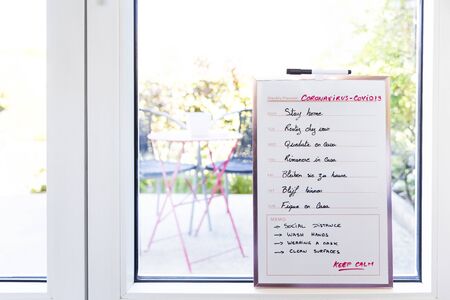 Weekly Planner CORONAVIRUS-COVID19
Stay home
Quedate en casa
Rimanere in casa
Bleiben sie zu hause
Blijf binnen
Fique em casa
MEMO
→ SOCIAL DISTANCE
→ WASH HANDS
→ WEARING A MASK
→ CLEAN SURFACES
KEEP CALM